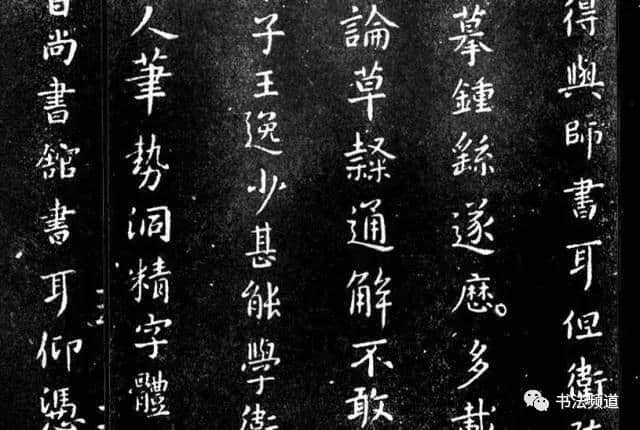 得與師書耳但衛
摹鍾繇遂歷。多載
論草隸通解不敢
子王逸少甚能學衛
人筆勢洞精字體
尚書舘書耳仰憑
书法频道